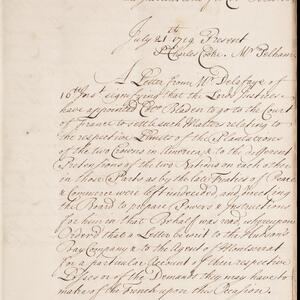 July 21th 1719 Present
Sr Charles Cooke. Mr Pelham.
A Letter from Mr Delafaye of
16th Inst. signifying that the Lords Justices
have appointed Coll. Bladen to go to the Court
of France to settle such Matters relating to
the respective Limits of the Plantations
of the two Crowns in America & to the different
Pretensions of the two Nations on each other
in those Parts as by the late Treaties of Peace
& Commerce were left undecided and directing
the Board to prepare Powers & Instructions
for him in that Behalf was read whereupon
Ordered that a Letter be writ to the Hudson's
Bay Company & to the Agent of Montserrat
for a particular Account of their respective
Losses or the Demands they may have to
make of the French upon this Occasion.